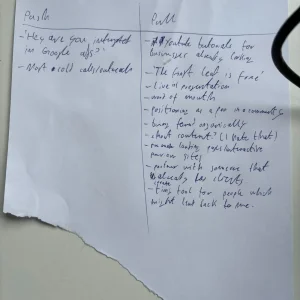 Push
"Hey are you interested
in Google ads?"
- Not cold calls/outreach
Pull
- Youtube tutorials for
businesses already looking
- "The first lead is free"
- Live presentation
- word of mouth
- positioning as a pro in a community
- being found organically
- short content? (I hate that)
- landing pages/interactive
sites
- partner with someone that
already has clients
- tiny tool for people which
might lead back to me.